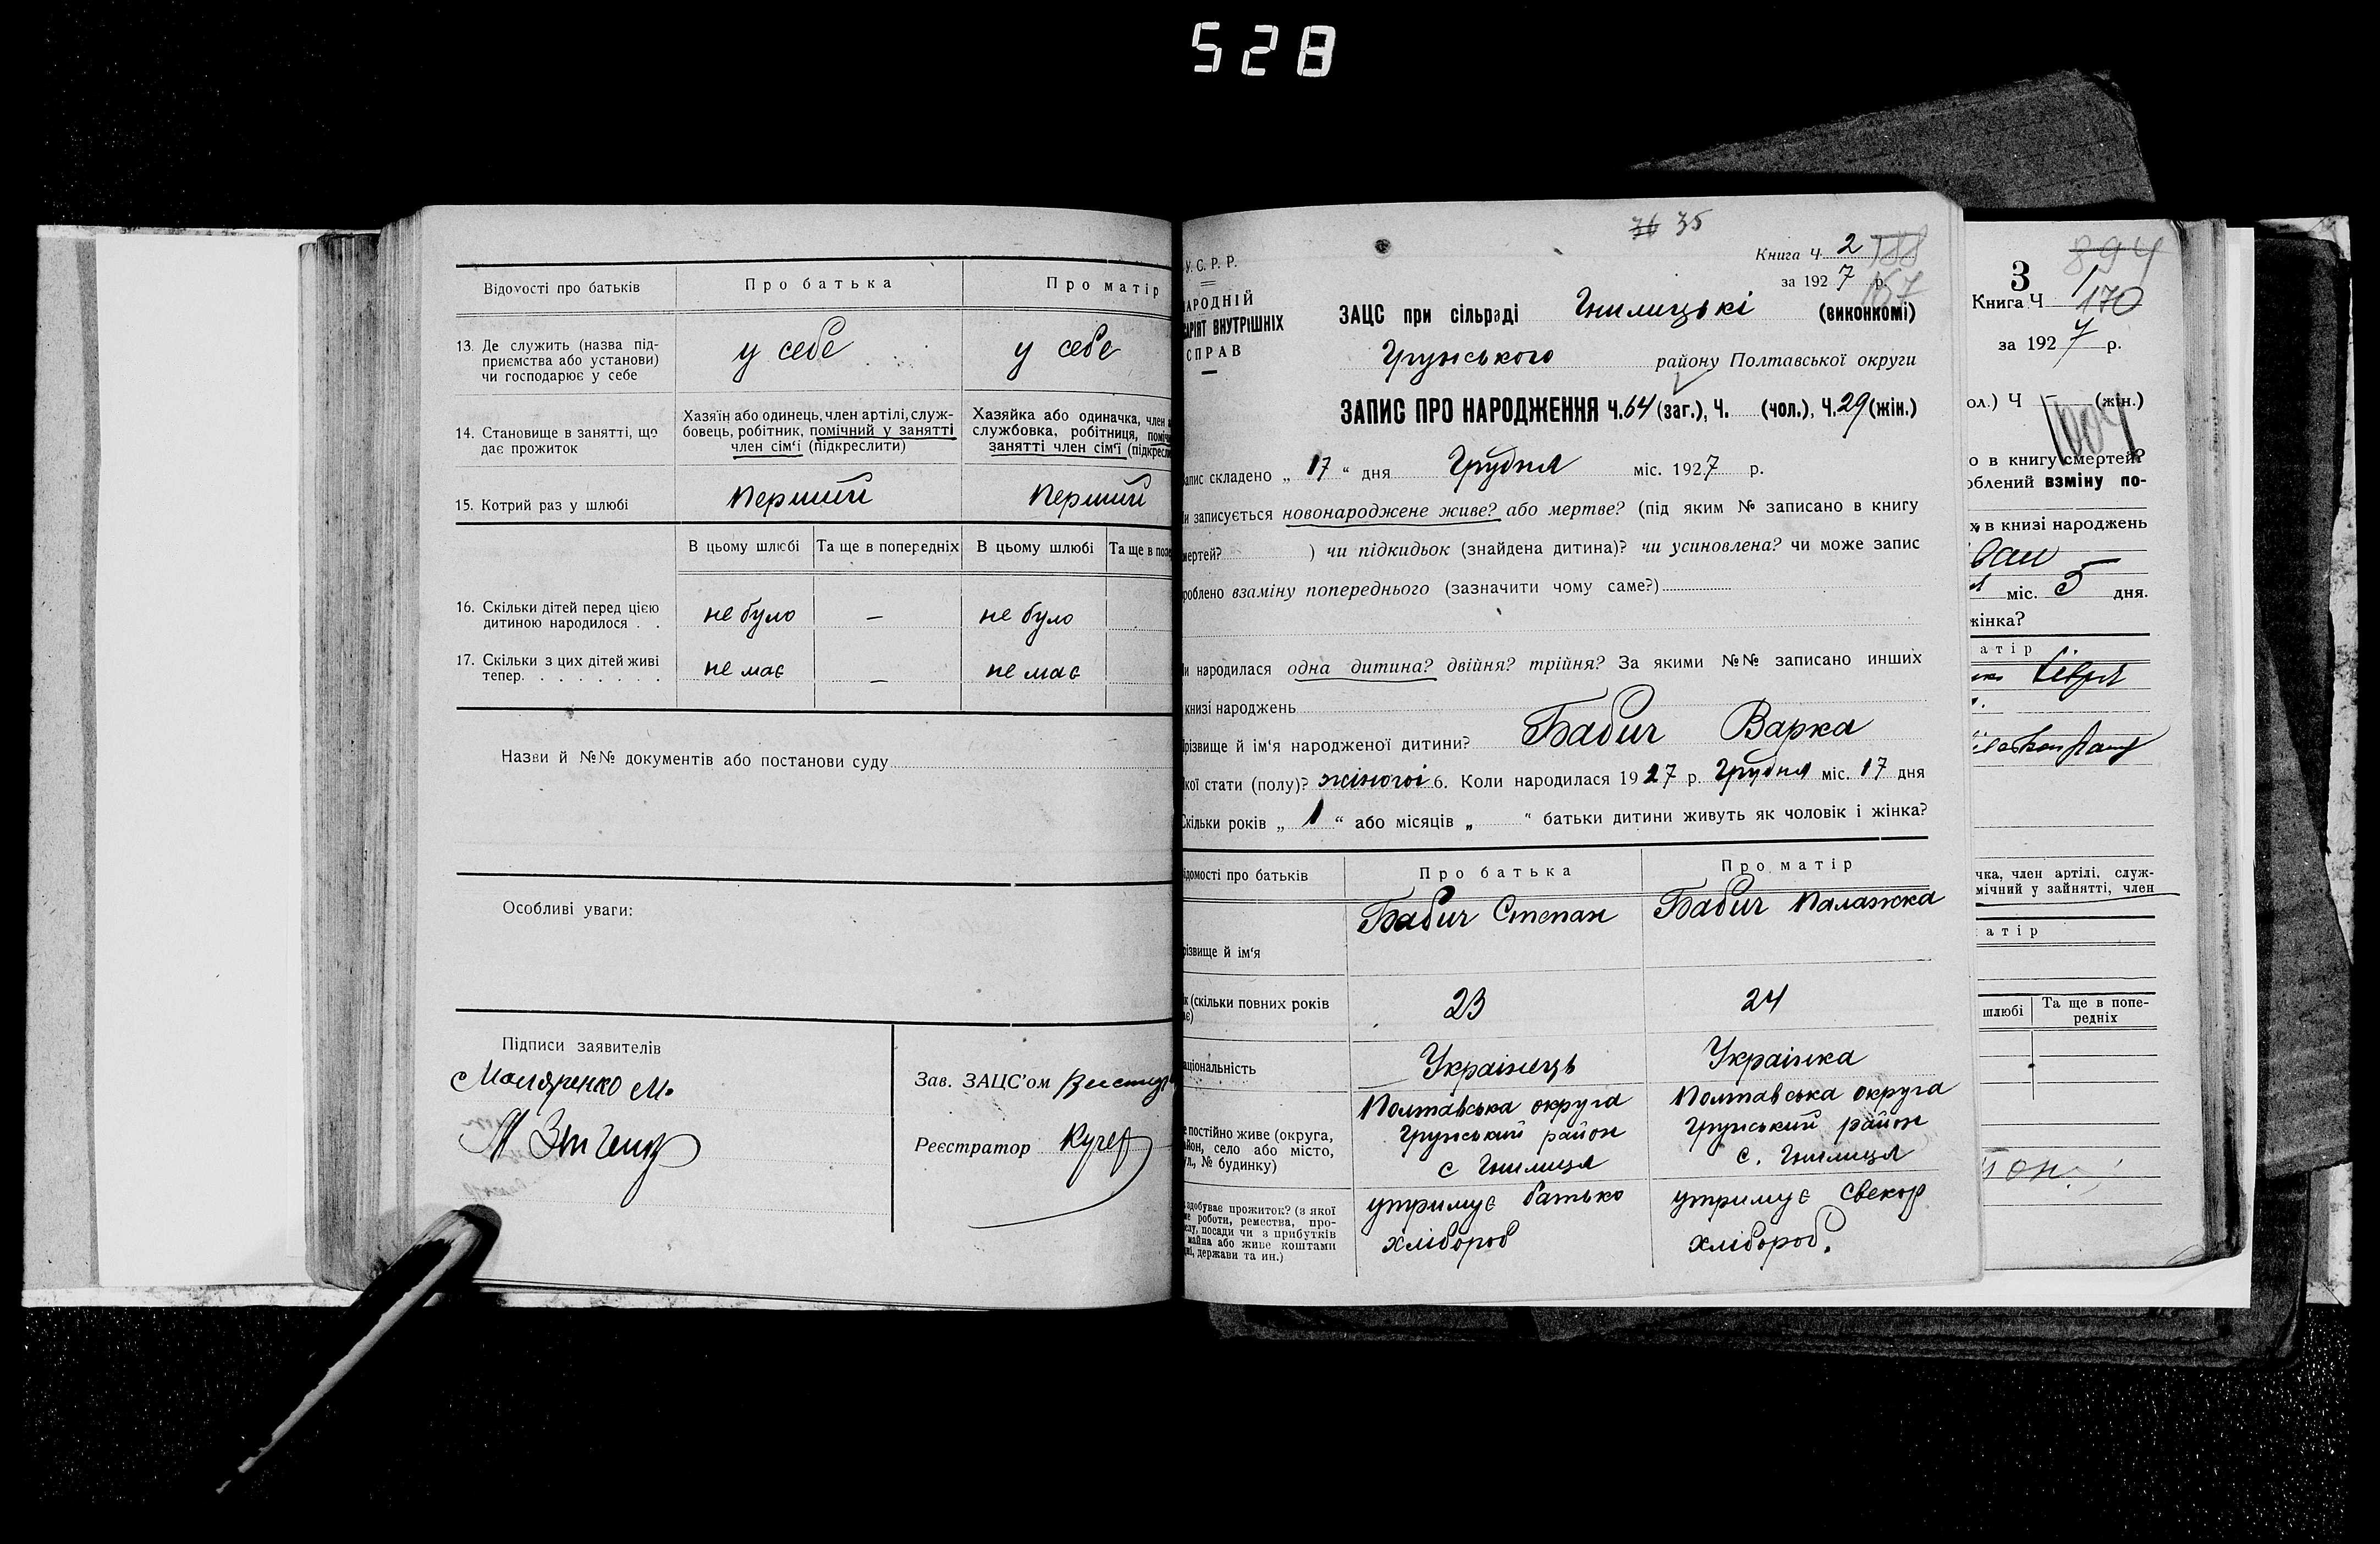 528
Відомості про батьків Про батька Про матір
13. Де служить (назва під-
приємства або установи)
чи господарює у себе
у себе у себе
14. Становище в занятті, що
дає прожиток
Хазяїн або одинець, член артілі, служ-
бовець, робітник, помічний у занятті
член сім‘ї (підкреслити)
Хазяйка або одиначка, член
службовка, робітниця,
занятті член сім‘ї
15. Котрий раз у шлюбі Перший Перший
В цьому шлюбі Та ще в попередніх В цьому шлюбі Та ще в
16. Скільки дітей перед цією
дитиною народилося . .
не було — не було
17. Скільки з цих дітей живі
тепер. . . . . . . .
не має — не має
Назви й №№ документів або постанови суду
Особливі уваги:
Підписи заявителів
Моляренко М.
Зав. ЗАЦС’ом
Реєстратор Кучер
36 35
У. С. Р. Р.
ВНУТРІШНІХ
СПРАВ
Книга Ч 2 188
за 1927 р. 167
ЗАЦС при сільраді Гнилицькі (виконкомі)
Грунського району Полтавської округи
ЗАПИС ПРО НАРОДЖЕННЯ Ч. 64 (заг.), Ч. (чол.), Ч. 29 (жін.)
складено „ 17 “ дня Грудня міс. 1927 р.
записується новонароджене живе? або мертве? (під яким № записано в книгу
) чи підкидьок (знайдена дитина)? чи усиновлена? чи може запис
взаміну попереднього (зазначити чому саме?)
народилася одна дитина? двійня? трійня? За якими №№ записано инших
книзі народжень
й ім‘я народженої дитини? Бабич Варка
стати (полу)? жіночої 6. Коли народилася 1927 р. Грудня міс. 17 дня
років „ 1 “ або місяців „ “ батьки дитини живуть як чоловік і жінка?
про батьків Про батька Про матір
й ім‘я
Бабич Степан Бабич Палажка
(скільки повних років
23 24
Українець Українка
постійно живе (округа,
село або місто,
№ будинку)
Полтавська округа
Грунський район
с Гнилиця
Полтавська округа
Грунський район
с. Гнилиця
прожиток? (з якої
роботи, ремества, про-
посади чи з прибутків
майна або живе коштами
держави та ин.)
утримує батько
хлібороб
утримує свекор
хлібороб.
3
894
Книга Ч 1
170
за 1927 р.
Ч — (жін.)
1004
в книгу смертей?
взміну по-
в книзі народжень
міс. 5 дня.
чка, член артілі, служ-
у зайнятті, член
шлюбі Та ще в попе-
редніх